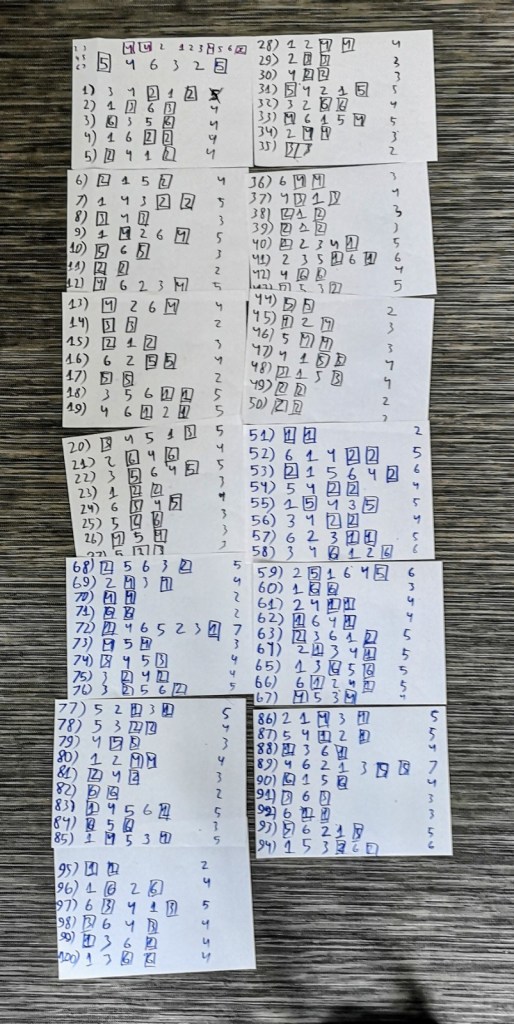 5 4 6 3 2 5
1) 3 4 2 1 2 5
2) 1 3 6 3 4
3) 6 3 5 6 4
4) 1 6 2 2 4
5) 2 4 1 2 4
6) 2 1 5 2 4
7) 1 4 3 2 2 5
8) 3 4 3 3
9) 1 4 2 6 4 5
10) 5 6 5 3
11) 2 2 2
12) 4 6 2 3 4 5
13) 4 2 6 4 4
14) 3 3 2
15) 2 1 2 3
16) 6 2 5 5 4
17) 5 5 2
18) 3 5 6 1 1 5
19) 4 6 1 2 1 5
20) 3 4 5 1 3 5
21) 2 6 4 6 4
22) 3 5 6 4 5 5
23) 1 2 2 3
24) 6 5 4 5 4
25) 5 6 3
26) 4 5 4 3
27) 5 3 3
28) 1 2 4 4 4
29) 2 3 3 3
30) 4 2 2 3
31) 5 4 2 1 5 5
32) 3 2 6 6 4
33) 4 6 1 5 4 5
34) 2 4 4 3
35) 3 3 2
36) 6 4 4 3
37) 4 3 1 3 4
38) 2 1 2 3
39) 2 1 2 3
40) 1 2 3 4 1 5
41) 2 3 5 1 6 1 6
42) 4 6 6 4
5 3 2 5
44) 5 5 2
45) 4 2 4 3
46) 5 4 4 3
47) 4 1 5 5 4
48) 1 5 3 4
49) 2 2 2
50) 2 2 2
51) 1 1 2
52) 6 1 4 2 2 5
53) 2 1 5 6 4 2 6
54) 5 4 2 2 4
55) 1 5 4 3 5 5
56) 3 4 2 2 4
57) 6 2 3 1 1 5
58) 3 4 6 1 2 6 6
59) 2 5 1 6 4 5 6
60) 1 6 6 3
61) 2 4 1 1 4
62) 1 6 4 1 4
63) 2 3 6 1 2 5
64) 2 1 3 4 1 5
65) 1 3 6 5 6 5
66) 6 1 2 4 1 5
67) 4 5 3 4 4
68) 2 5 6 3 2 5
69) 2 4 3 4 4
70) 4 4 2
71) 6 6 2
72) 1 4 6 5 2 3 1 7
73) 4 5 4 3
74) 3 4 5 3 4
75) 3 2 4 2 4
76) 3 2 5 6 2 5
77) 5 2 1 3 1 5
78) 5 3 2 2 4
79) 4 5 5 3
80) 1 2 4 4 4
81) 2 4 2 3
82) 6 6 2
83) 1 4 5 6 1 5
84) 6 5 6 3
85) 1 4 5 3 4 5
86) 2 1 4 3 4 5
87) 5 4 1 2 1 5
88) 1 3 6 1 4
89) 4 6 2 1 3 5 5 7
90) 6 1 5 6 4
91) 3 6 3 3
92) 6 1 1 3
93) 5 6 2 1 5 5
94) 1 5 3 2 6 2 6
95) 1 1 2
96) 1 6 2 6 4
97) 6 3 4 1 3 5
98) 3 6 4 3 4
99) 1 3 6 1 4
100) 1 3 6 6 4